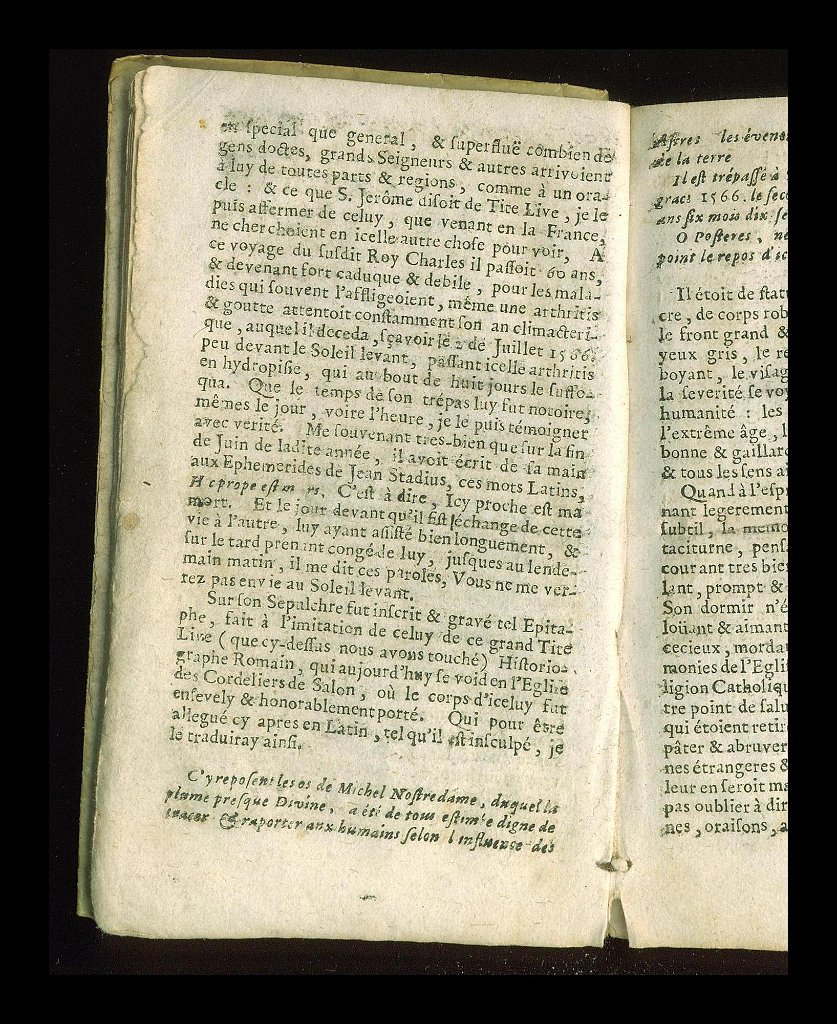 en ſpecial que general, & ſuperfluë combien de
gens doctes, grands Seigneurs & autres arrivoient
à luy de toutes parts & regions, comme à un ora-
cle : & ce que S. Jerôme diſoit de Tite Live, je le
puis affermer de celuy, que venant en la France,
ne cherchoient en icelle autre choſe pour voir, A
ce voyage du ſuſdit Roy Charles il paſſoit 60 ans,
& devenant fort caduque & debile, pour les mala-
dies qui ſouvent l'affligeoient, même une arthritis
& goutte attentoit conſtamment ſon an climacteri-
que, auquel il deceda, ſçavoir le 2 de Juillet 1566.
peu devant le Soleil levant, paſſant icelle arthritis
en hydropiſie, qui au bout de huit jours le ſuffo-
qua. Que le temps de ſon trépas luy fut notoire,
mêmes le jour, voire l'heure, je le puis témoigner
avec verité. Me ſouvenant tres-bien que ſur la fin
de Juin de ladite année, il avoit écrit de ſa main
aux Ephemerides de Jean Stadius, ces mots Latins,
H c prope est m rs. C'eſt à dire, Icy proche eſt ma
mort. Et le jour devant qu'il fiſt l'échange de cette
vie à l'autre, luy ayant aſſiſté bien longuement, &
ſur le tard prenant congé de luy, juſques au lende-
main matin, il me dit ces paroles, Vous ne me ver-
rez pas en vie au Soleil levant.
Sur ſon Sepulchre fut inſcrit & gravé tel Epita-
phe, fait à l'imitation de celuy de ce grand Tite
Live (que cy-deſſas nous avons touché) Hiſtorio-
graphe Romain, qui aujourd'huy ſe void en l'Egliſe
des Cordeliers de Salon, où le corps d'iceluy fut
enſevely & honorablement porté. Qui pour être
allegué cy apres en Latin, tel qu'il eſt inſculpé, je
le traduiray ainſi.
C'y repoſent les os de Michel Noſtredame, duquel la
plume preſque Divine, a été de tous eſtimée digne de
tracer & raporter aux humains ſelon l influence des
Aſtres les évene
de la terre
Il eſt trépaſſé à
grace 1566. le ſec
ans ſix mois dix ſe
O Poſteres, ne
point le repos d'ic
Il étoit de ſtatu
cre, de corps rob
le front grand &
yeux gris, le re
boyant, le viſag
la ſeverité ſe voy
humanité : les
l'extrême âge, l
bonne & gaillard
& tous les ſens ai
Quand à l'eſpr
nant legerement
ſubtil, la memo
taciturne, penſ
courant tres bien
lant, prompt &
Son dormir n'é
loüant & aimant
cecieux, mordan
monies de l'Egliſ
ligion Catholiqu
tre point de ſalu
qui étoient retir
pâter & abruver
nes étrangeres &
leur en ſeroit ma
pas oublier à dir
nes, oraiſons, a